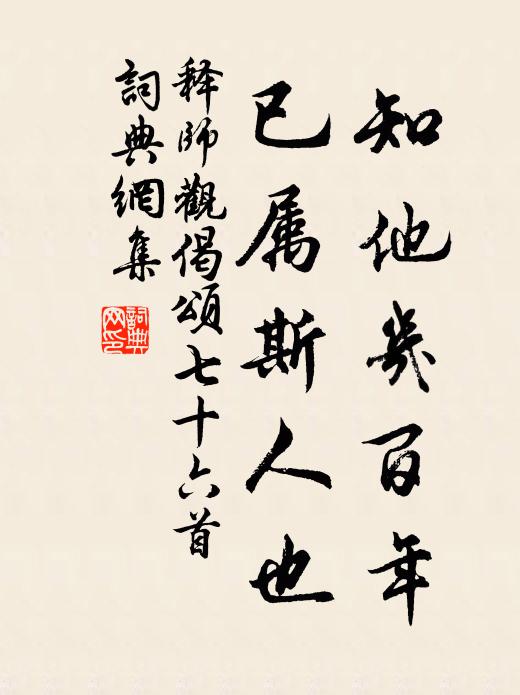 知他幾百年
已属斯人也
释師觀偈頌七十六首
詞典網集
詞典网印